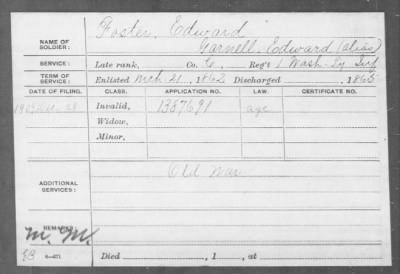 NAME OF SOLDIER: Foster, Edward
Garnell, Edward (alias)
SERVICE: Late rank, Co. G, Reg't 1 Wash. Ty Inf
TERM OF SERVICE: Enlisted Mch 21, 1862 Discharged , 1865
DATE OF FILING. CLASS. APPLICATION NO. LAW. CERTIFICATE NO.
28 Invalid, 1387691 age
Widow,
Minor,
ADDITIONAL SERVICES: Old War
REMARKS:
M. M.
6-471
Died , 1 , at